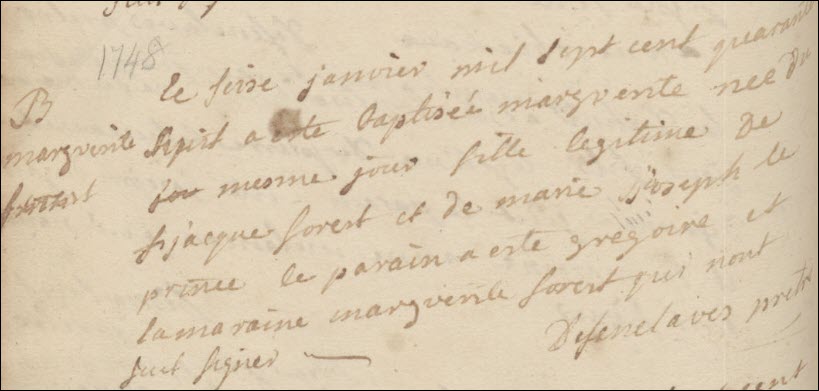 1748
le seise janvier mil sept cent quarante
B
marguerite sept a este baptiseé marguerite neé du
forest jour mesme jour fille legitime de
jacque forest et de marie joseph le
prince le parain a este gregoire et
la maraine marguerite forest qui nont
sut signer Desenclaves pretre